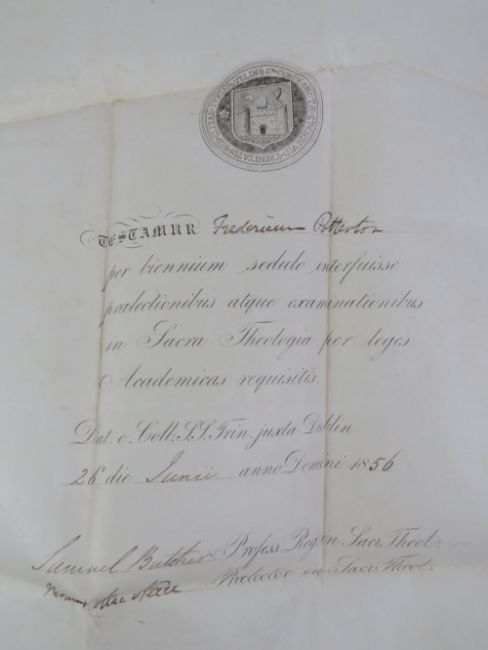 TESTAMUR Fredericum Potterton
per biennium sedulo interfuisse
prælectionibus atque examinationibus
in Sacra Theologia per leges
Academicas requisitis.
Dat. e. Coll. S.S. Trin. juxta Dublin
26 die Junii anno Domini 1856
Samuel Butcher Profess. Reg. in Sac. Theol.
Prælector in Sac. Theol.